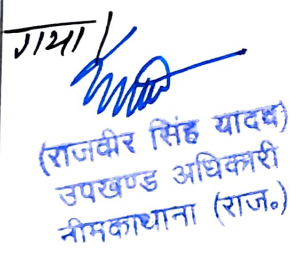 गया
(राजवीर सिंह यादव)
उपखण्ड अधिकारी
नीमकाथाना (राज०)